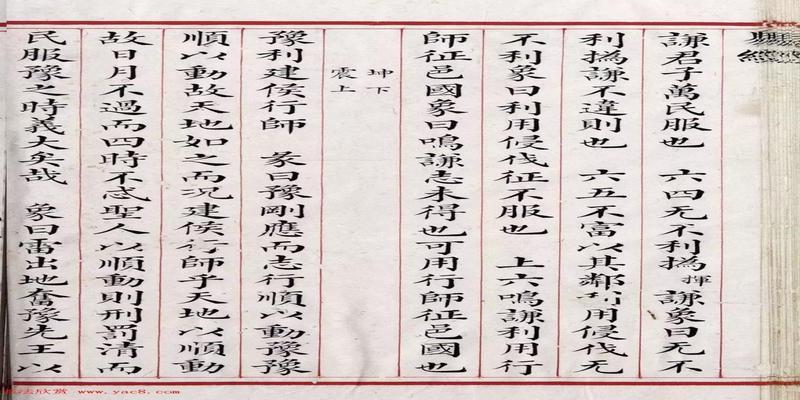 謙君子萬民服也　六四无不利撝揮謙象曰无不
利撝謙不違則也　六五不富以其鄰利用侵伐无
不利象曰利用侵伐征不服也　上六鳴謙利用行
師征邑國象曰鳴謙志未得也可用行師征邑國也
坤下
震上
豫利建侯行師　彖曰豫剛應而志行順以動豫豫
順以動故天地如之而况建侯行師乎天地以順動
故日月不過而四時不忒聖人以順動則刑罰清而
民服豫之時義大矣哉　象曰雷出地奮豫先王以
法欣赏 www.yac8.com